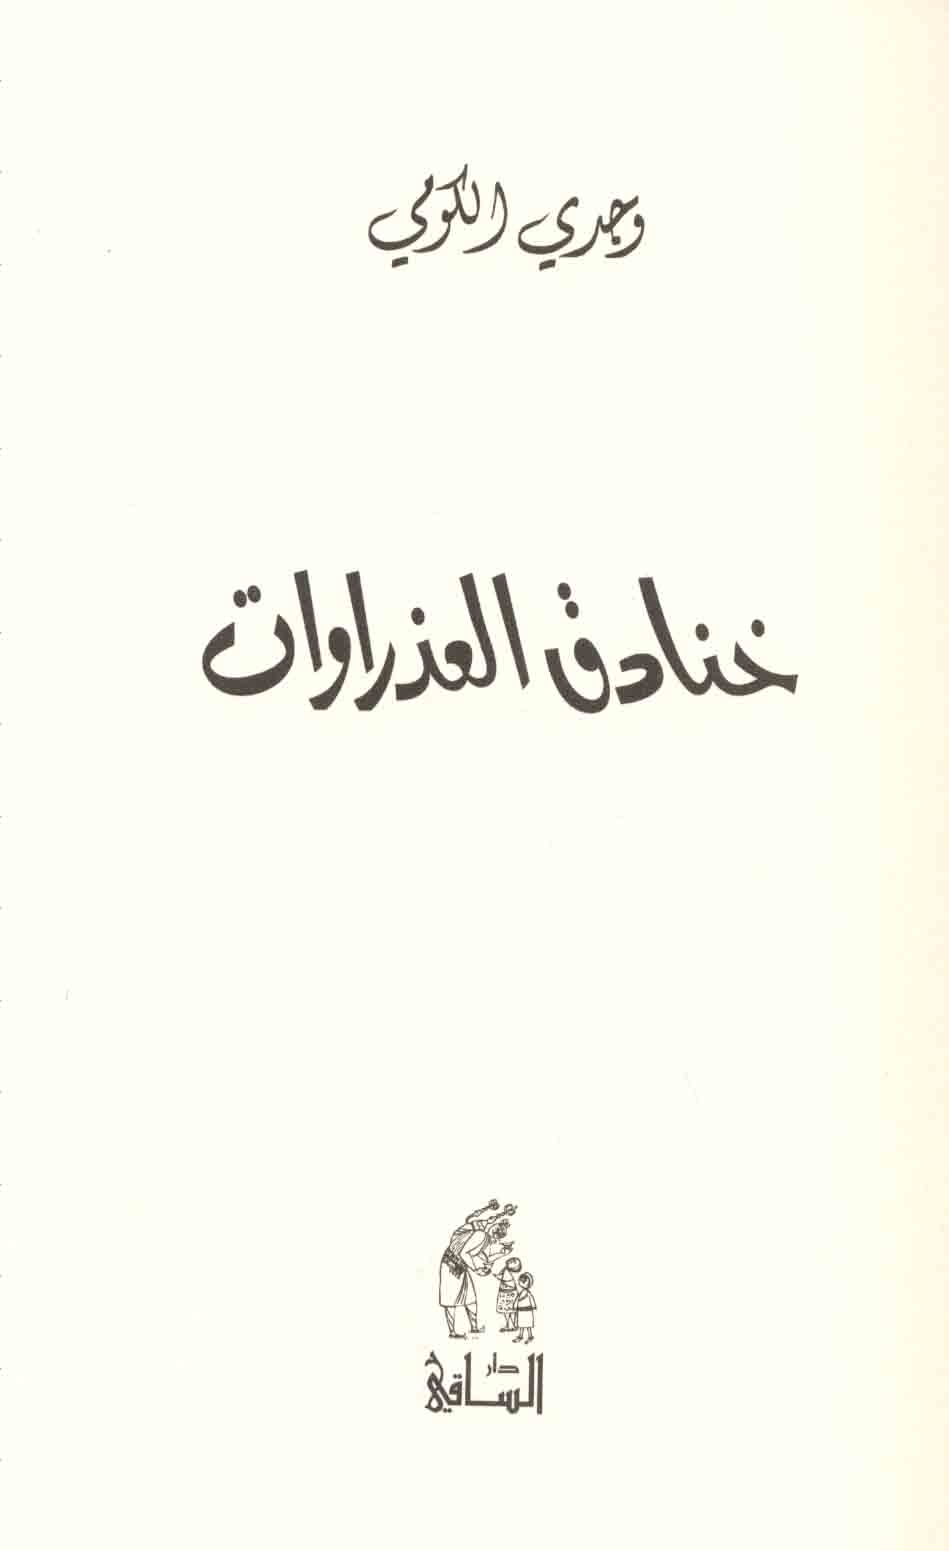 وجدي الكومي
خنادق العذراوات
دار
الساقي